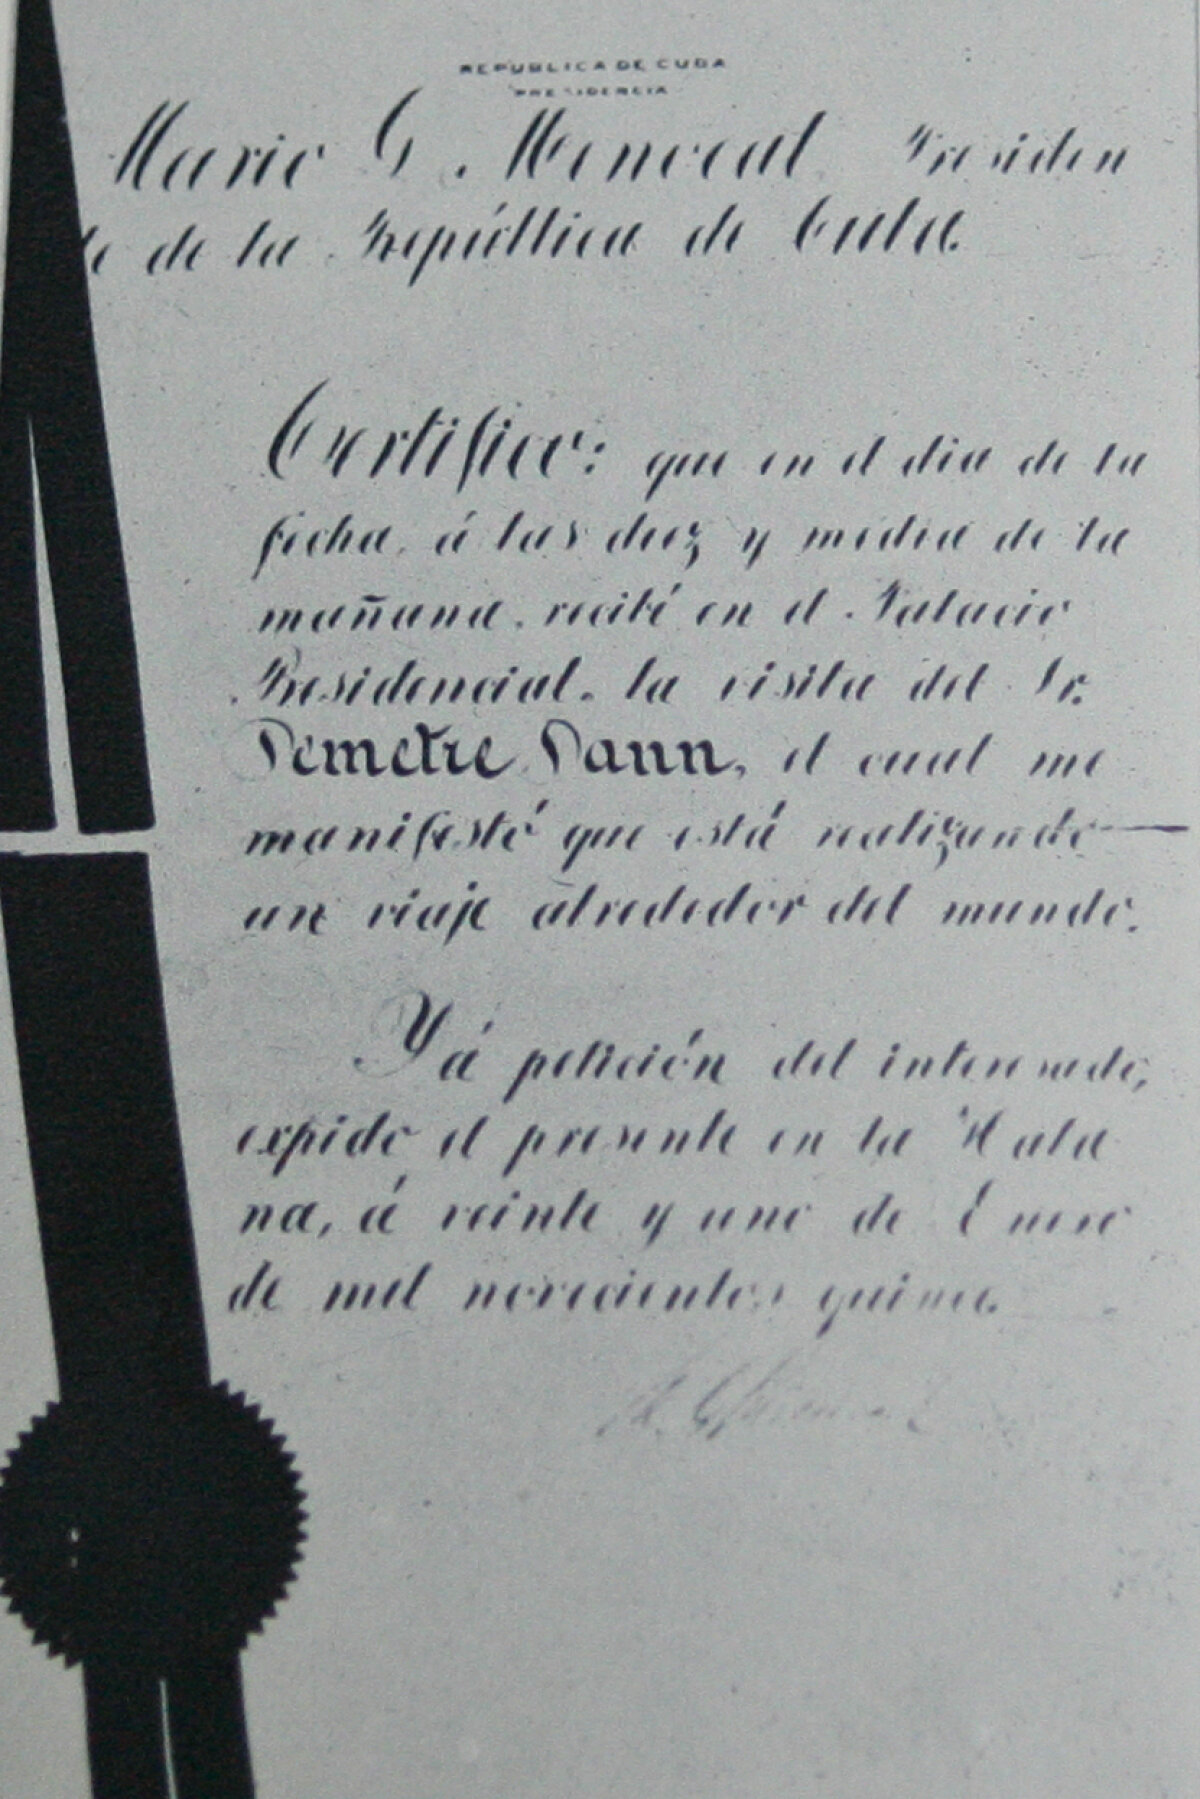 REPUBLICA DE CUBA
PRESIDENCIA
Mario G. Menocal Presiden
te de la República de Cuba.
Certifico: que en el dia de la
fecha, á las diez y media de la
mañana, recibí en el Palacio
Presidencial, la visita del Sr.
Demetre Dann, el cual me
manifestó que está realizando
un viaje alrededor del mundo.
Y á petición del interesado,
expido el presente en la Haba
na, á veinte y uno de Enero
de mil novecientos quince.
M. G. Menocal